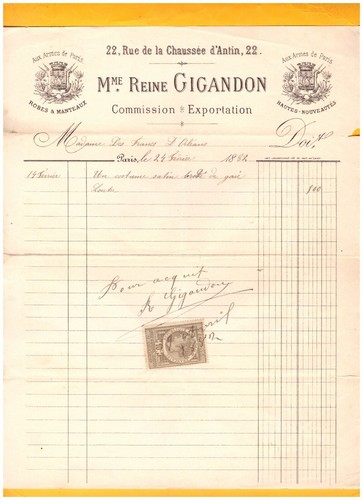 22, Rue de la Chaussée d'Antin, 22.
Aux Armes de Paris
ROBES & MANTEAUX
Aux Armes de Paris
HAUTES-NOUVEAUTÉS
MME REINE GIGANDON
Commission & Exportation
Madame Des Francs d'Orléans Doit
Paris, le 24 Février 1882
14 février Un costume satin brodé de jais
800
Pour acquit
R Gigandon
Avril